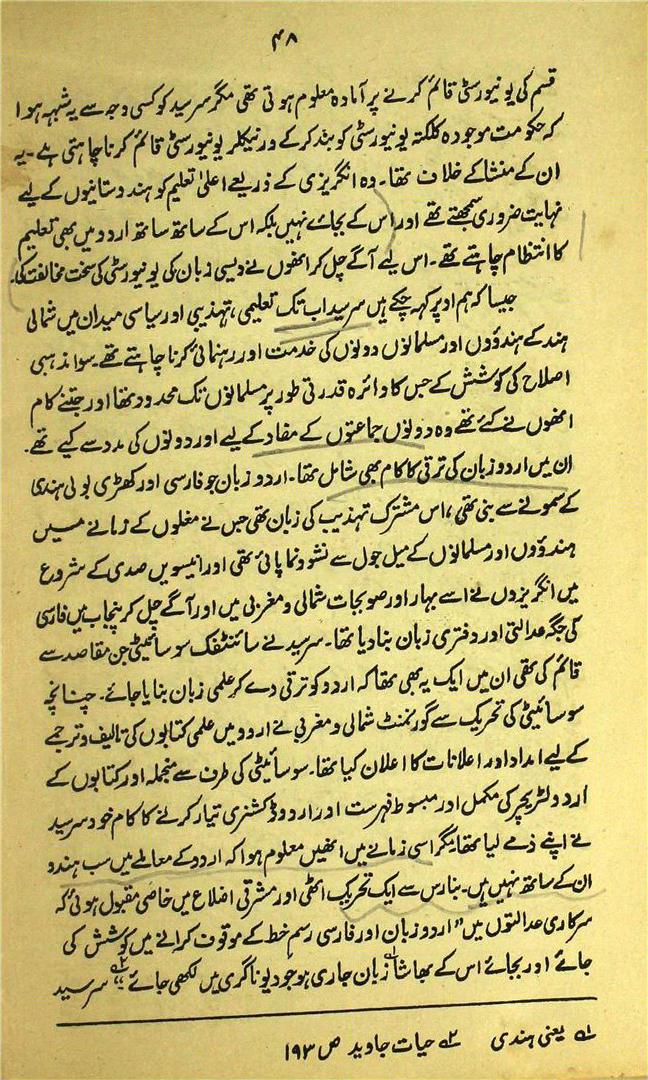 ۴۸
قسم کی یونیورسٹی قائم کرنے پر آمادہ معلوم ہوتی تھی مگر سرسید کو کسی وجہ سے یہ شبہہ ہوا
کہ حکومت موجودہ کلکتہ یونیورسٹی کو بند کرکے ورنیکلر یونیورسٹی قائم کرنا چاہتی ہے۔ یہ
ان کے منشا کے خلاف تھا۔ وہ انگریزی کے ذریعے اعلیٰ تعلیم کو ہندستانیوں کے لیے
نہایت ضروری سمجھتے تھے اور اس کے بجائے نہیں بلکہ اس کے ساتھ ساتھ اردو میں بھی تعلیم
کا انتظام چاہتے تھے۔ اس لیے آگے چل کر انھوں نے دیسی زبان کی یونیورسٹی کی سخت مخالفت کی۔
جیسا کہ ہم اوپر کہہ چکے ہیں سرسید اب تک تعلیمی، تہذیبی اور سیاسی میدان میں شمالی
ہند کے ہندوؤں اور مسلمانوں دونوں کی خدمت اور رہنمائی کرنا چاہتے تھے۔ سوا مذہبی
اصلاح کی کوشش کے جس کا دائرہ قدرتی طور پر مسلمانوں تک محدود تھا اور جتنے کام
انھوں نے کئے تھے وہ دونوں جماعتوں کے مفاد کے لیے اور دونوں کی مدد سے کیے تھے۔
ان میں اردو زبان کی ترقی کا کام بھی شامل تھا۔ اردو زبان جو فارسی اور کھڑی بولی ہندی
کے سمونے سے بنی تھی، اس مشترک تہذیب کی زبان تھی جس نے مغلوں کے زمانے میں
ہندوؤں اور مسلمانوں کے میل جول سے نشوونما پائی تھی اور انیسویں صدی کے شروع
میں انگریزوں نے اسے بہار اور صوبجات شمالی و مغربی میں اور آگے چل کر پنجاب میں فارسی
کی جگہ عدالتی اور دفتری زبان بنادیا تھا۔ سرسید نے سائنٹفک سوسائیٹی جن مقاصد سے
قائم کی تھی ان میں ایک یہ بھی تھا کہ اردو کو ترقی دے کر علمی زبان بنایا جائے۔ چنانچہ
سوسائیٹی کی تحریک سے گورنمنٹ شمالی و مغربی نے اردو میں علمی کتابوں کی تالیف و ترجمے
کے لیے امداد اور اعلانات کا اعلان کیا تھا۔ سوسائیٹی کی طرف سے منجملہ اور کتابوں کے
اردو لٹریچر کی مکمل اور مبسوط فہرست اور اردو ڈکشنری تیار کرنے کا کام خود سرسید
نے اپنے ذمے لیا تھا۔ مگر اسی زمانے میں انھیں معلوم ہوا کہ اردو کے معاملے میں سب ہندو
ان کے ساتھ نہیں ہیں۔ بنارس سے ایک تحریک اٹھی اور مشرقی اضلاع میں خاصی مقبول ہوئی کہ
سرکاری عدالتوں میں "اردو زبان اور فارسی رسم خط کے موقوف کرانے میں کوشش کی
جائے اور بجائے اس کے بھاشا۱ زبان جاری ہو جو دیوناگری میں لکھی جائے"۲ سرسید
۱ یعنی ہندی ۲ حیات جاوید ص ۱۹۳